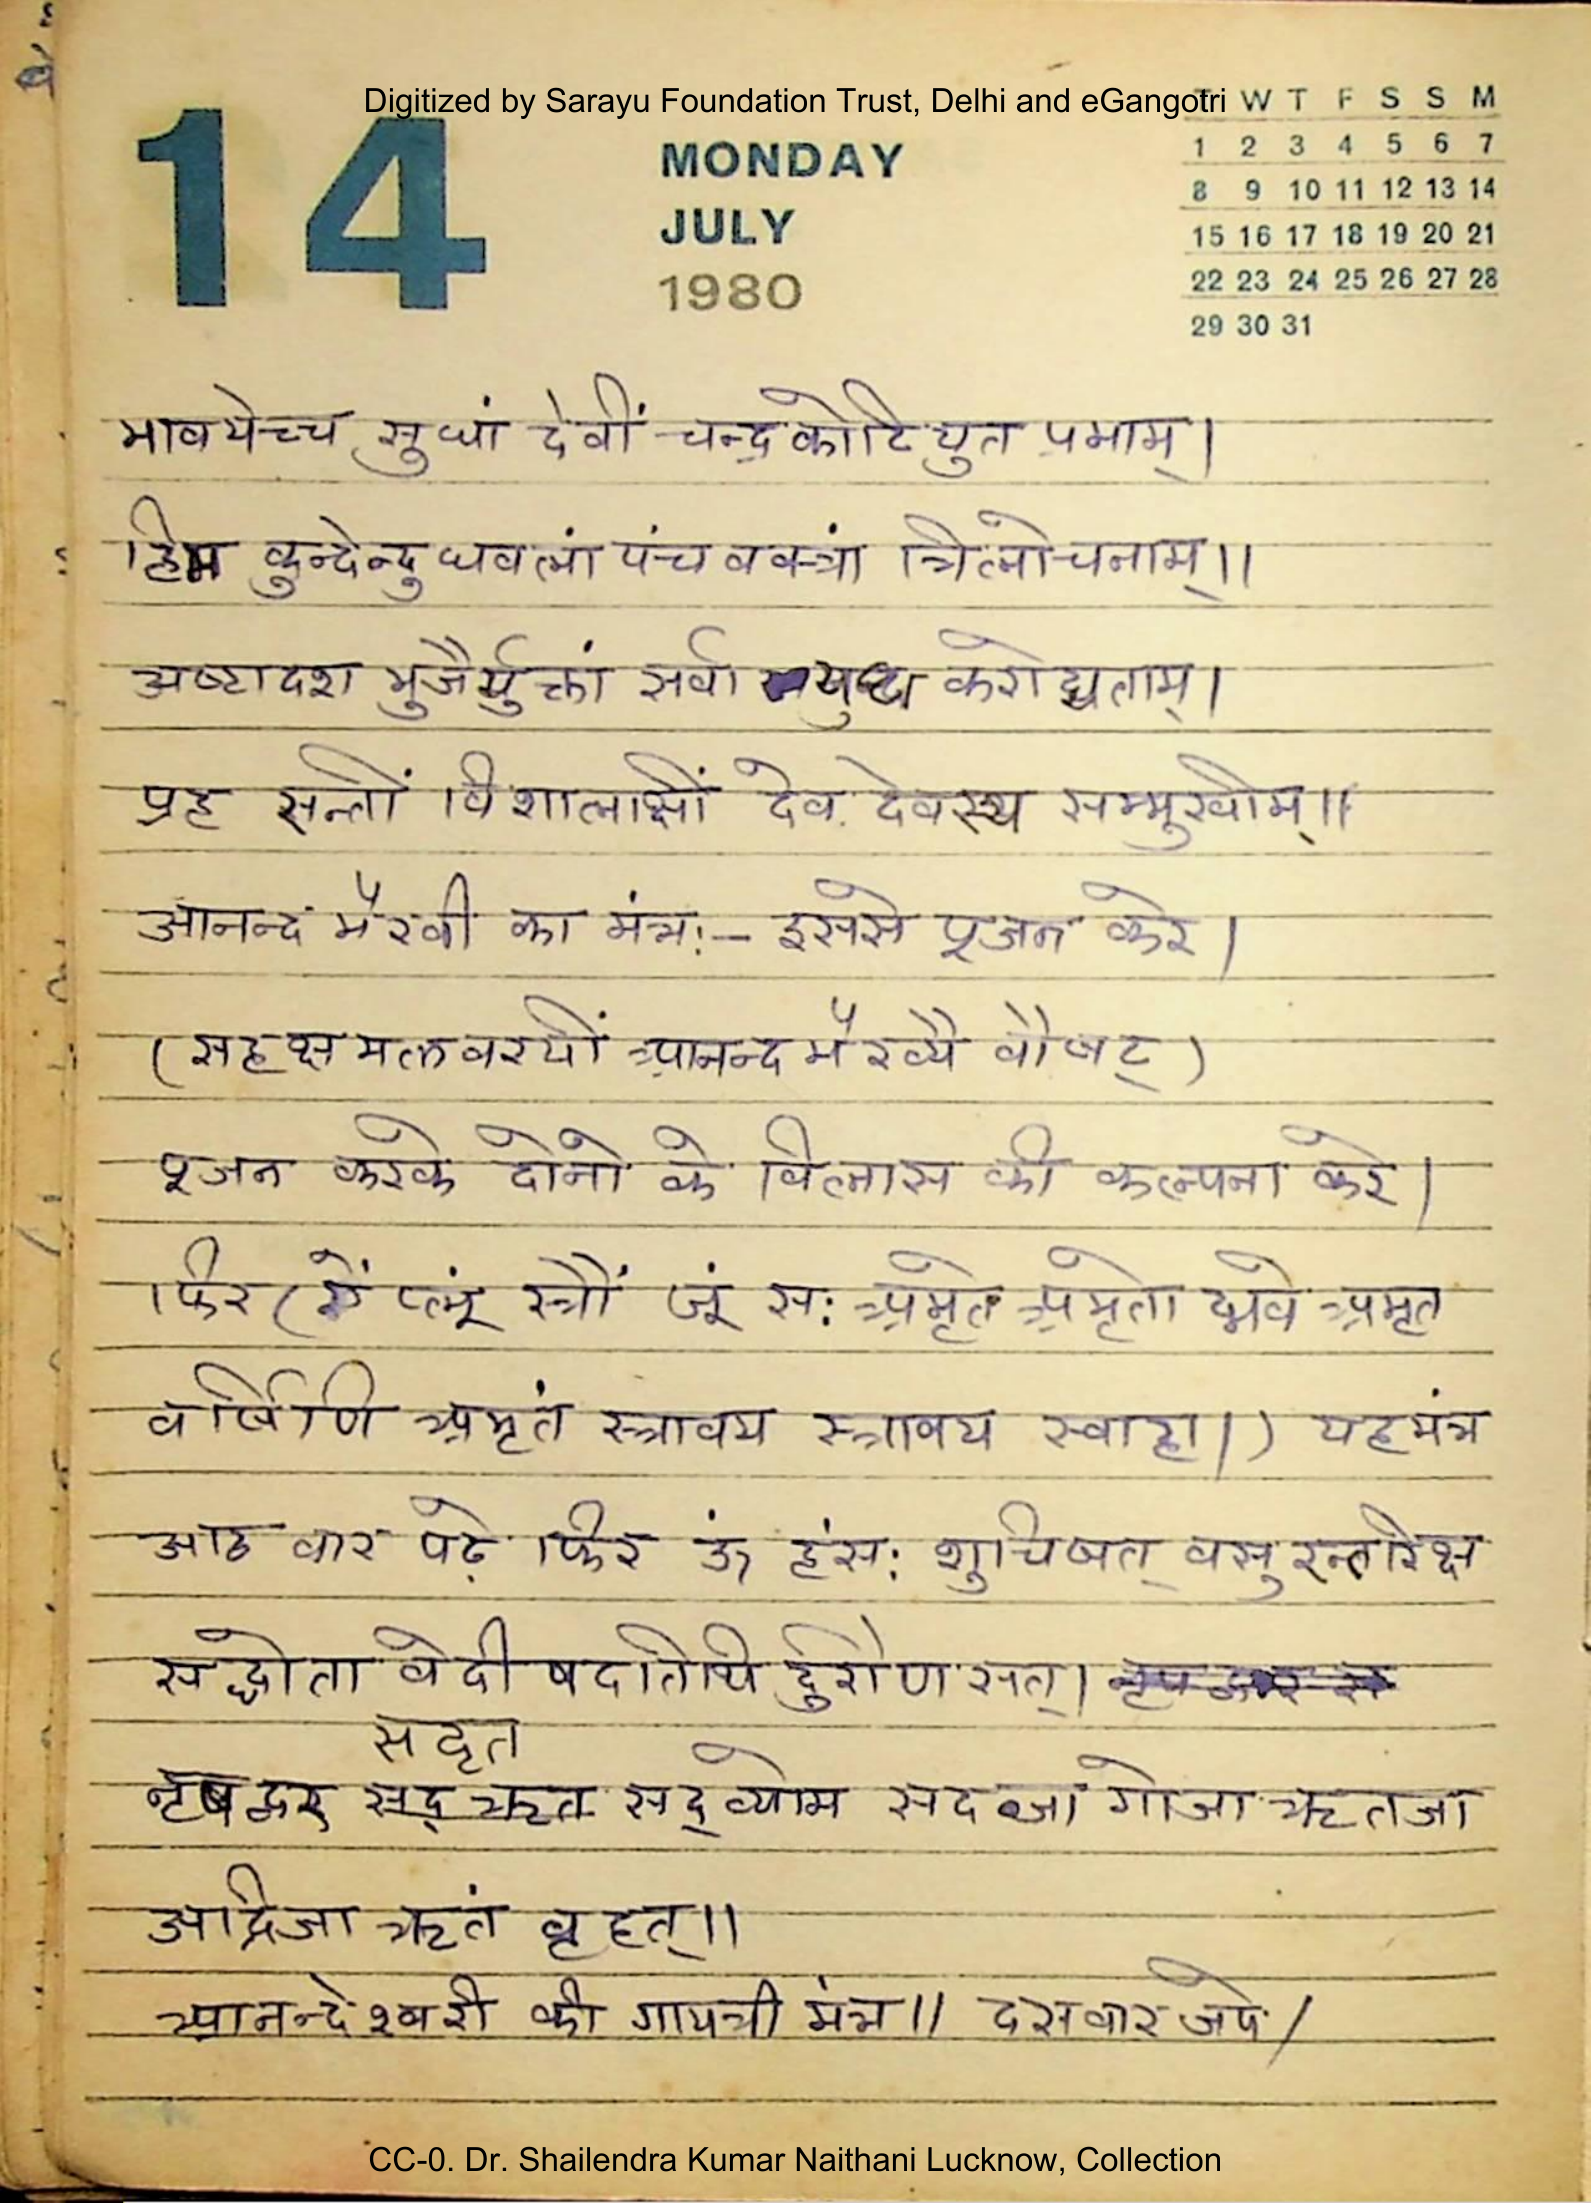 Digitized by Sarayu Foundation Trust, Delhi and eGangotri
14
MONDAY
JULY
1980
T W T F S S M
1 2 3 4 5 6 7
8 9 10 11 12 13 14
15 16 17 18 19 20 21
22 23 24 25 26 27 28
29 30 31
भावयेच्च सुधां देवीं चन्द्रकोटियुत प्रभाम्।
हिम कुन्देन्दु धवलां पंच वक्त्रां त्रिलोचनाम्।।
अष्टादश भुजैर्युक्तां सर्वा युध करोद्यताम्।
प्रह सन्तीं विशालाक्षीं देव देवस्य सम्मुखीम्।।
आनन्द भैरवी का मंत्र:- इससे पूजन करे।
(सहक्षमलवरयीं आनन्द भैरव्यै वौषट्)
पूजन करके दोनो के विलास की कल्पना करे।
फिर (ऐं प्लूं स्त्रौं जूं स: अमृते अमृतो द्भवे अमृत
वर्षिणि अमृतं स्त्रावय स्त्रावय स्वाहा।) यह मंत्र
आठ बार पढ़े फिर ऊं हंस: शुचिषत् वसु रन्तरिक्ष
सद्धोता वेदी षदतिथि र्दुरोण सत्।
सदृत
नृषद्वर सद् ऋत सद् व्योम सदब्जा गोजा ऋतजा
अद्रिजा ऋतं बृहत्।।
आनन्देश्वरी की गायत्री मंत्र।। दस बार जपे।
CC-0. Dr. Shailendra Kumar Naithani Lucknow, Collection